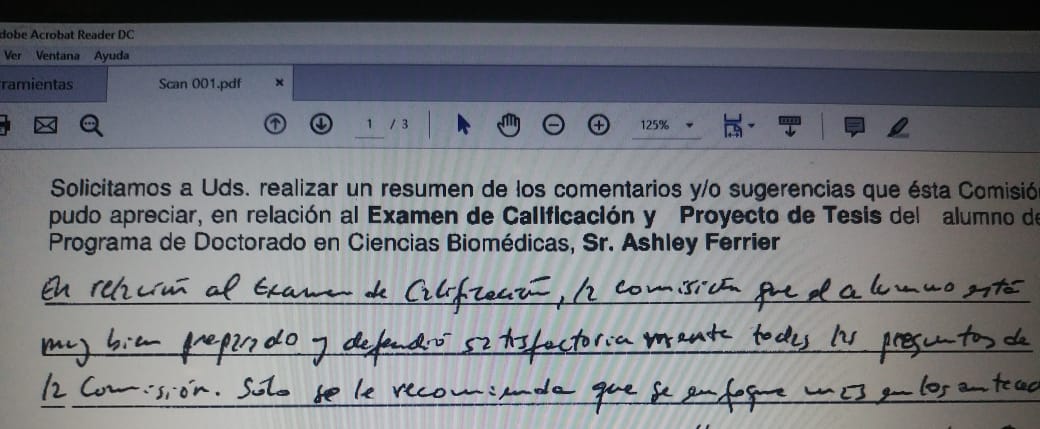 dobe Acrobat Reader DC
Ver Ventana Ayuda
ramientas Scan 001.pdf ×
1 / 3 125%
Solicitamos a Uds. realizar un resumen de los comentarios y/o sugerencias que ésta Comisió
pudo apreciar, en relación al Examen de Calificación y Proyecto de Tesis del alumno de
Programa de Doctorado en Ciencias Biomédicas, Sr. Ashley Ferrier
En relación al Examen de Calificación, la comisión que el alumno está
muy bien preparado y defendió satisfactoriamente todas las preguntas de
la Comisión. Sólo se le recomienda que se enfoque más en los anteced